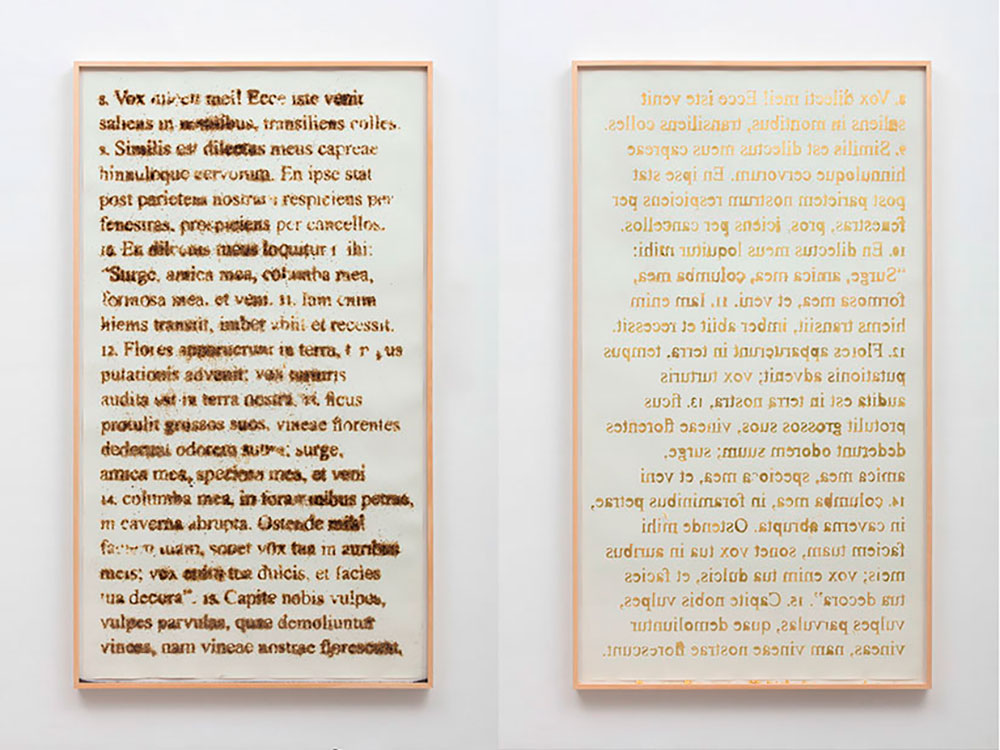 8. Vox mei! Ecce iste venit
saliens in montibus, transiliens colles.
9. Similis est dilectus meus capreae
hinnuloque cervorum. En ipse stat
post parietem nostrum respiciens per
fenestras, prospiciens per cancellos.
10. En dilectus meus loquitur mihi:
“Surge, amica mea, columba mea,
formosa mea, et veni. 11. Iam enim
hiems transiit, imber abiit et recessit.
12. Flores apparuerunt in terra,
putationis advenit; vox turturis
audita est in terra nostra, 13. ficus
protulit grossos suos, vineae florentes
dederunt odorem suum; surge,
amica mea, speciosa mea, et veni
14. columba mea, in foraminibus petrae,
in caverna abrupta. Ostende mihi
faciem tuam, sonet vox tua in auribus
meis; vox enim tua dulcis, et facies
tua decora”. 15. Capite nobis vulpes,
vulpes parvulas, quae demoliuntur
vineas, nam vineae nostrae florescunt.
8. Vox dilecti mei! Ecce iste venit
saliens in montibus, transiliens colles.
9. Similis est dilectus meus capreae
hinnuloque cervorum. En ipse stat
post parietem nostrum respiciens per
fenestras, prospiciens per cancellos.
10. En dilectus meus loquitur mihi:
“Surge, amica mea, columba mea,
formosa mea, et veni. 11. Iam enim
hiems transiit, imber abiit et recessit.
12. Flores apparuerunt in terra, tempus
putationis advenit; vox turturis
audita est in terra nostra, 13. ficus
protulit grossos suos, vineae florentes
dederunt odorem suum; surge,
amica mea, speciosa mea, et veni
14. columba mea, in foraminibus petrae,
in caverna abrupta. Ostende mihi
faciem tuam, sonet vox tua in auribus
meis; vox enim tua dulcis, et facies
tua decora”. 15. Capite nobis vulpes,
vulpes parvulas, quae demoliuntur
vineas, nam vineae nostrae florescunt.